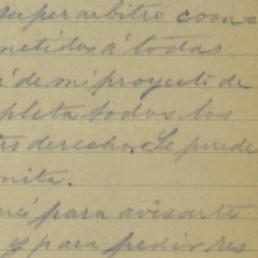 superarbitro com=
metidos á todas
á de mi proyecto de
pleta todos los
tro derecho. Se puede
mita.
para avisarte
y para pedir res